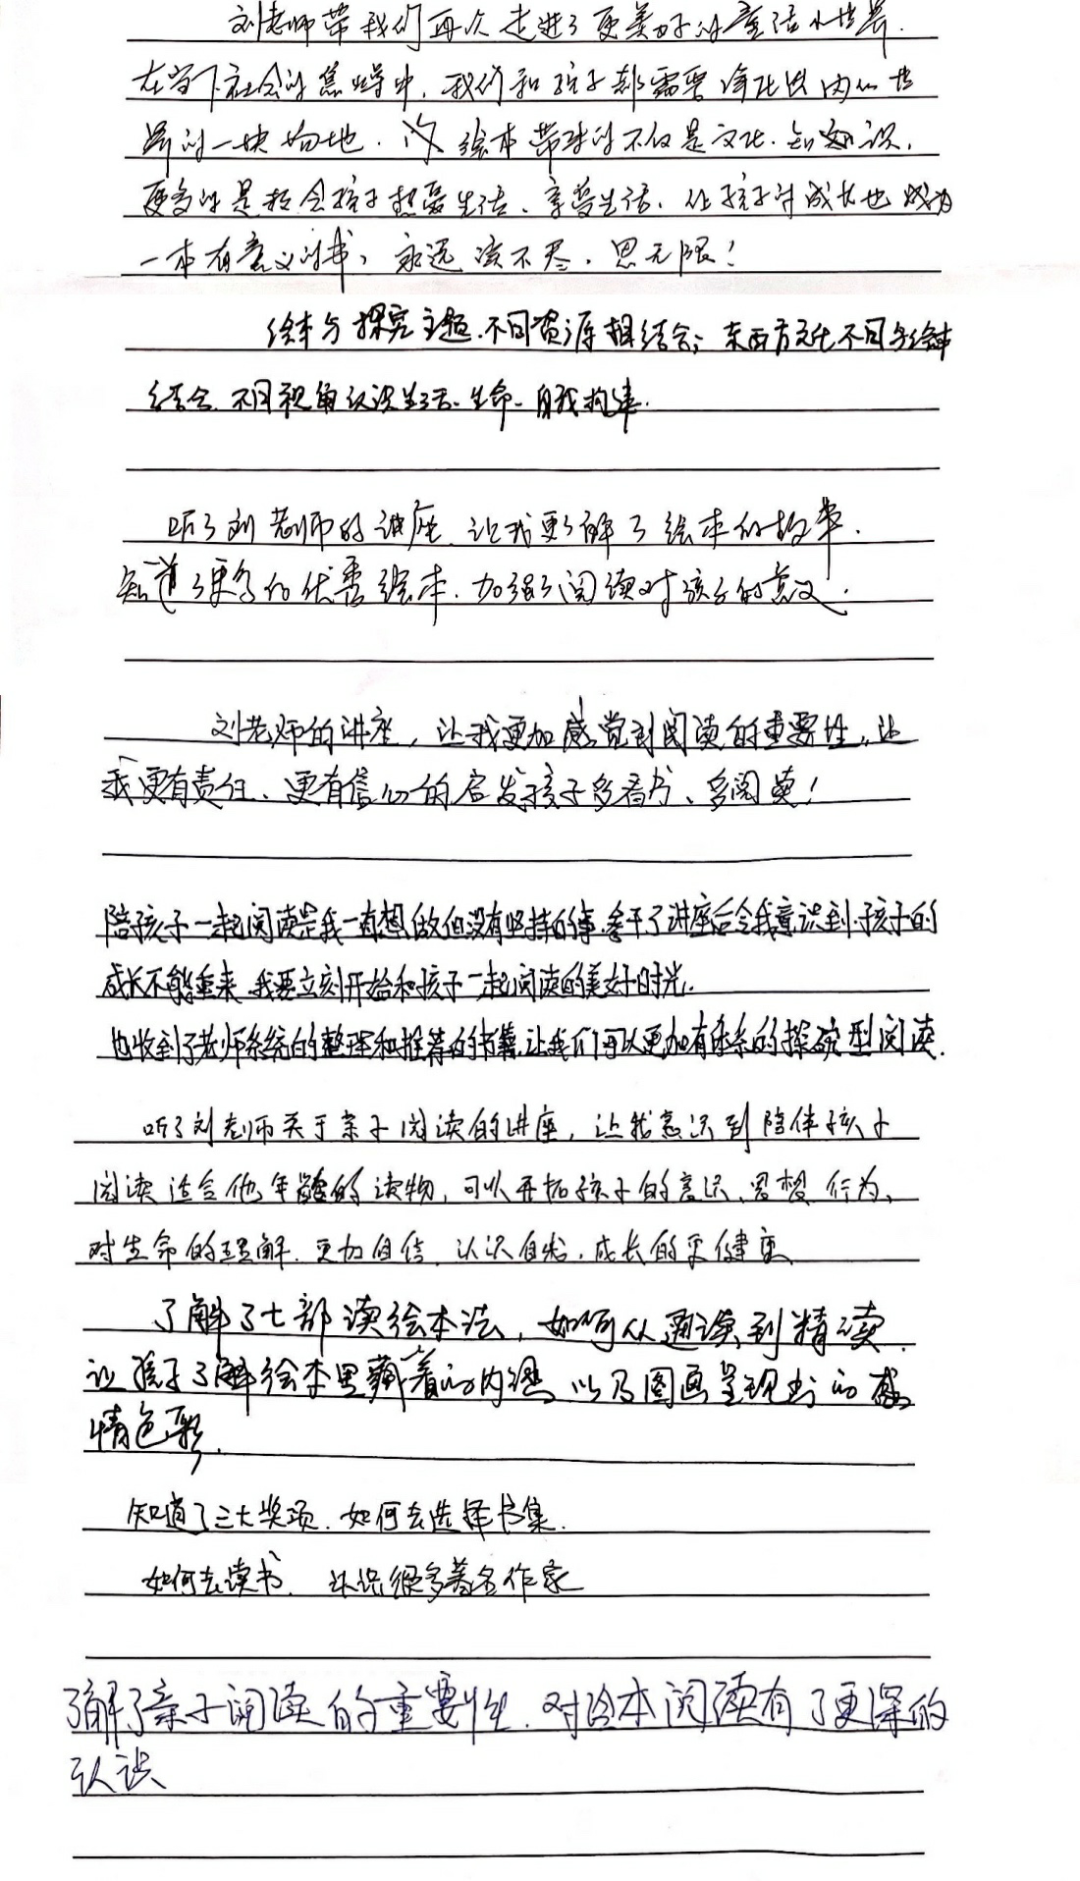 刘老师带我们再次走进了更美好的童话小世界.
在当下社会的焦燥中，我们和孩子都需要净化出内心世
界的一块场地. 绘本带来的不仅是文化.知识，
更多的是教会孩子热爱生活、享受生活，让孩子的成长也成为
一本有意义的书，永远读不尽，思无限！
绘本与探究主题.不同资源相结合；东西方文化不同绘本
结合.不同视角认识生活-生命-自我构建.
听了刘老师的讲座，让我更了解了绘本的故事.
知道了更多的优秀绘本.加强了阅读对孩子的意义.
刘老师的讲座，让我更加感觉到阅读的重要性，让
我更有责任、更有信心的启发孩子多看书、多阅读！
陪孩子一起阅读是我一直想做但没有坚持的事.参于了讲座后令我意识到孩子的
成长不能重来.我要立刻开始和孩子一起阅读的美好时光.
也收到了老师系统的整理和推荐的书籍，让我们可以更加有体系的探究型阅读.
听了刘老师关于亲子阅读的讲座，让我意识到陪伴孩子
阅读适合他年龄的读物，可以开拓孩子的意识、思想、行为、
对生命的理解.更加自信.认识自然.成长的更健康
了解了七部读绘本法，如何从通读到精读.
让孩子了解绘本里藏着的内涵 以及图画呈现出的感
情色彩.
知道了三大奖项.如何去选择书集.
如何去读书. 认识很多著名作家
了解了亲子阅读的重要性.对绘本阅读有了更深的
认识